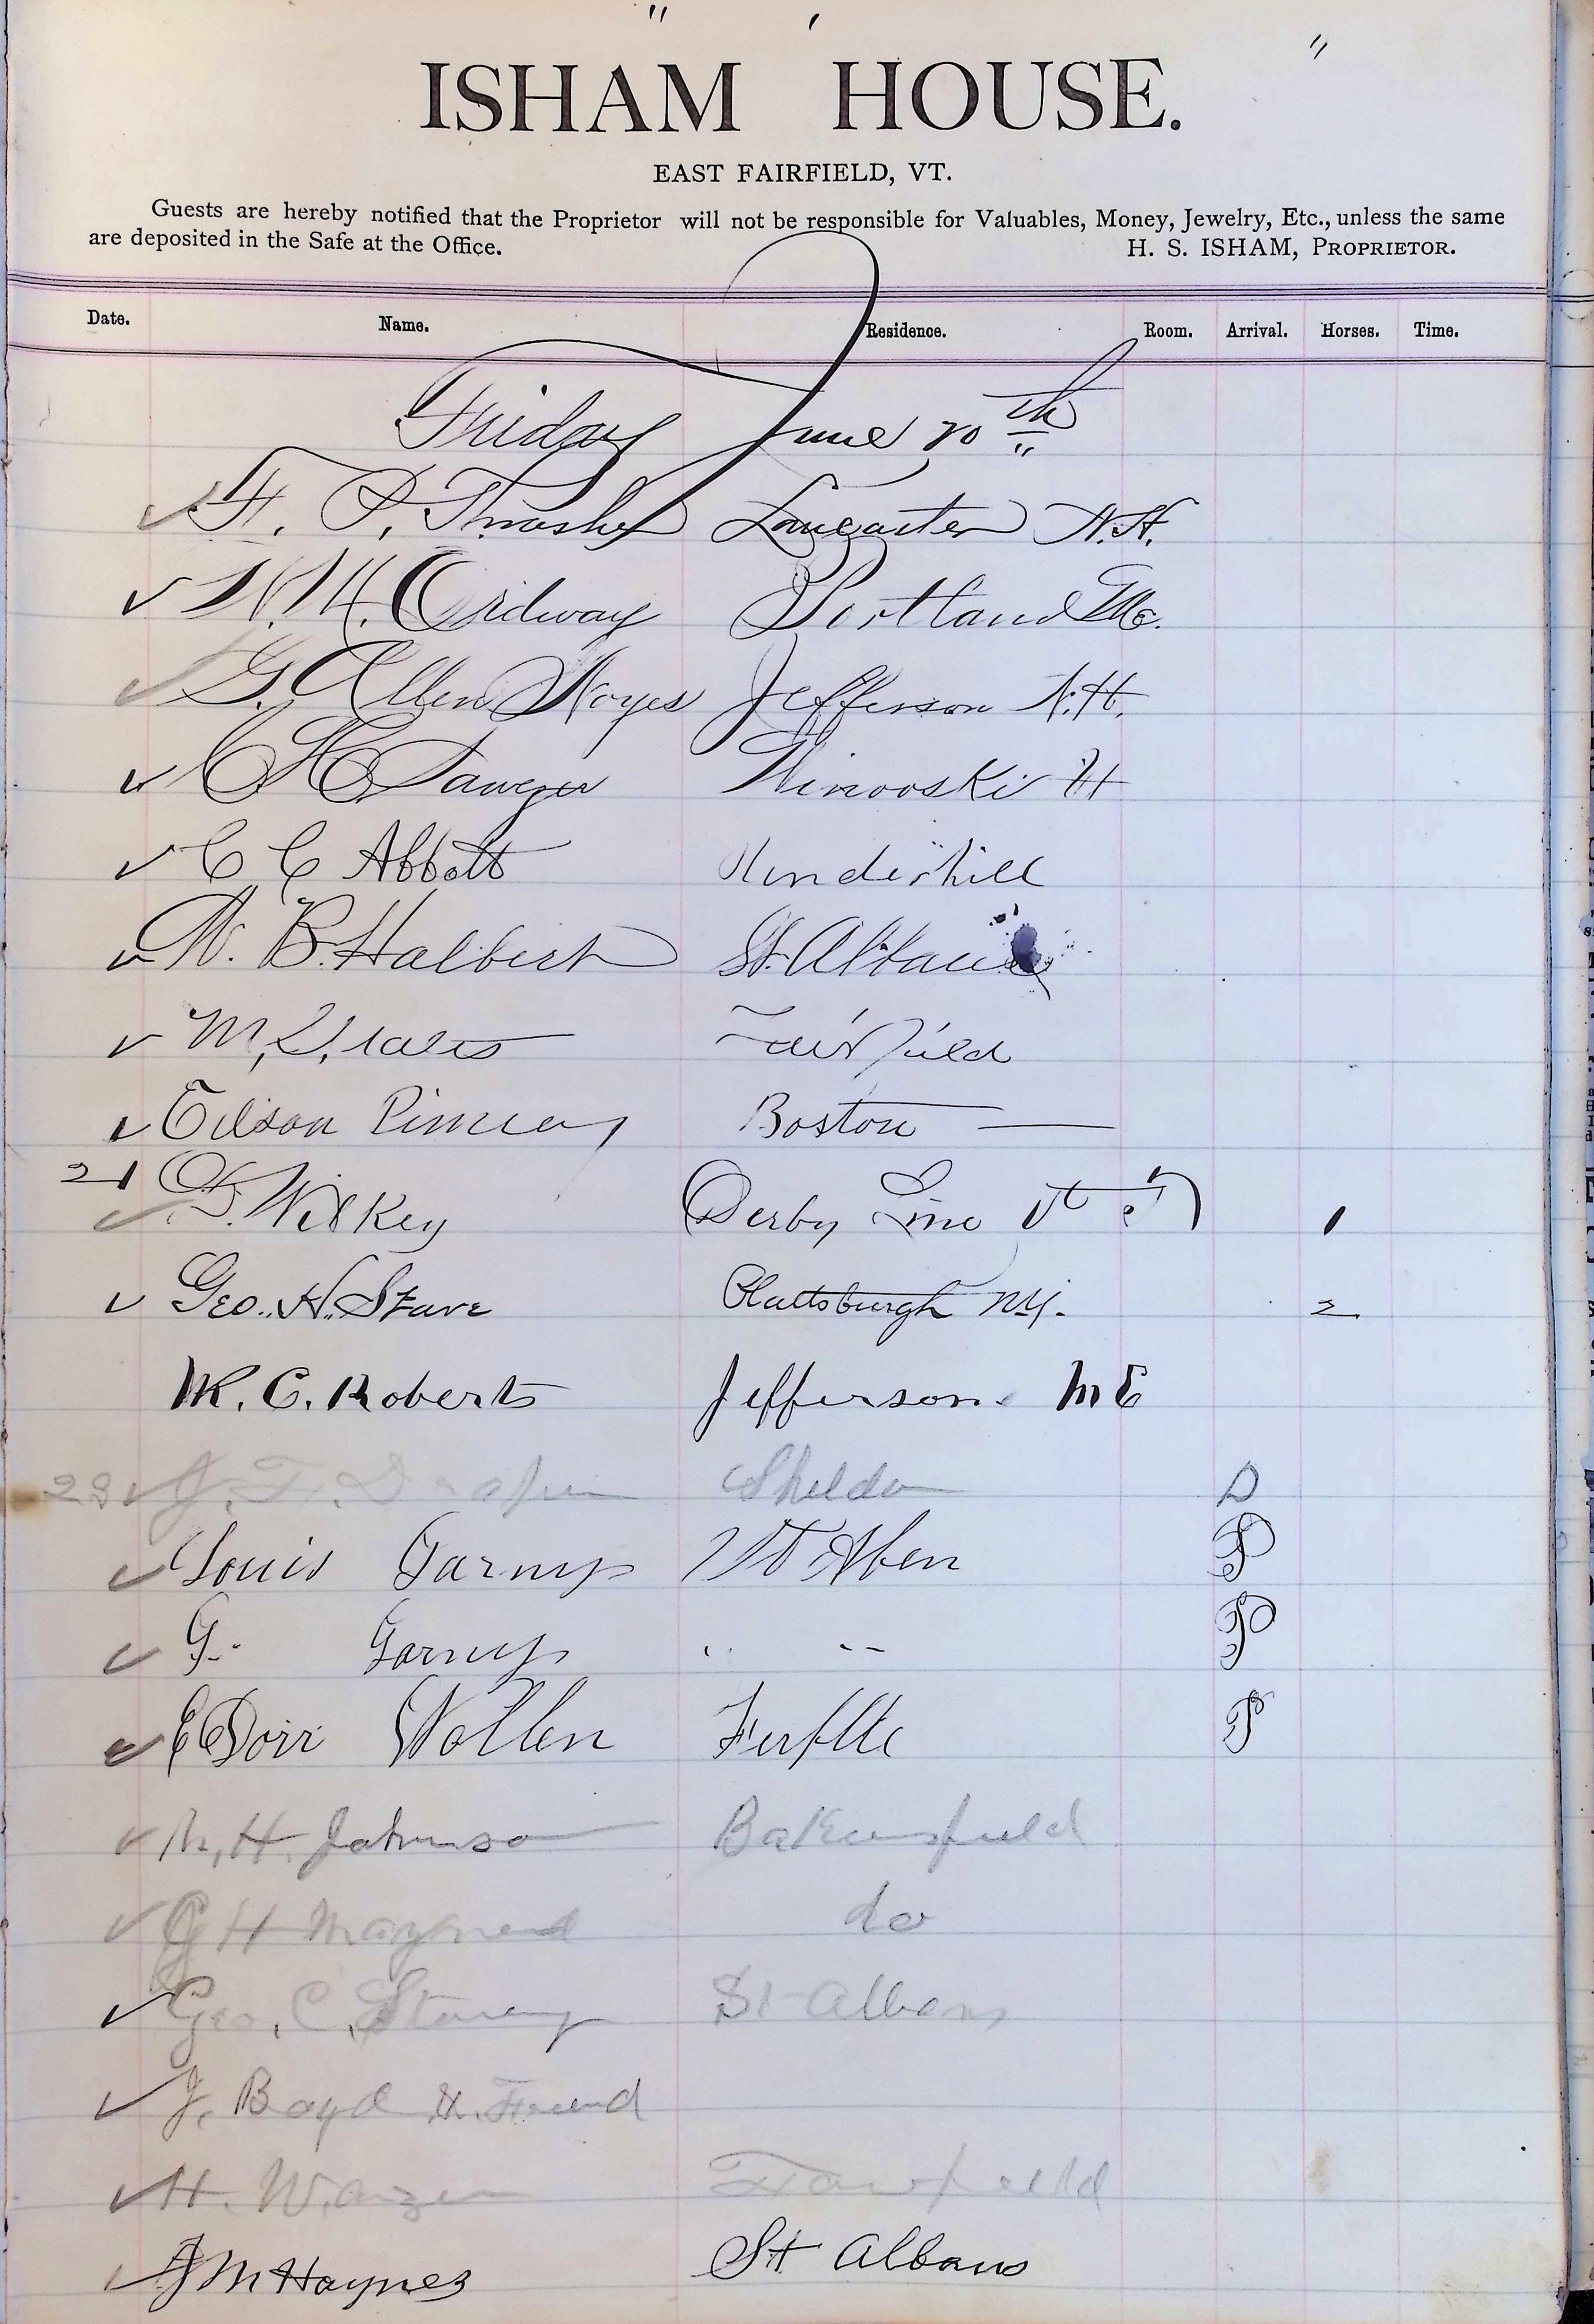 ISHAM HOUSE.
EAST FAIRFIELD, VT.
Guests are hereby notified that the Proprietor will not be responsible for Valuables, Money, Jewelry, Etc., unless the same
are deposited in the Safe at the Office. H. S. ISHAM, PROPRIETOR.
Date. Name. Residence. Room. Arrival. Horses. Time.
Friday June 20th
F. P. Thrasher Lancaster N.H.
Ordway Portland Me.
G. Allen Noyes Jefferson N.H.
C H Sawyer Winooski Vt
C C Abbott Underhill
W. B. Halbert St. Albans
M, S, Fairfield
Edson Boston
21 Wilkey Derby Line Vt 1
Geo. H. Plattsburgh N.Y. 2
W. C. Roberts Jefferson. ME
28 J. T. Draper Sheldon D
Louis P
G. " " P
E Dorr P
H. Johnson Bakersfield
G H Maynard do
Geo. C. St Albans
J. Boyd & Friend
H. Fairfield
J M Haynes St Albans